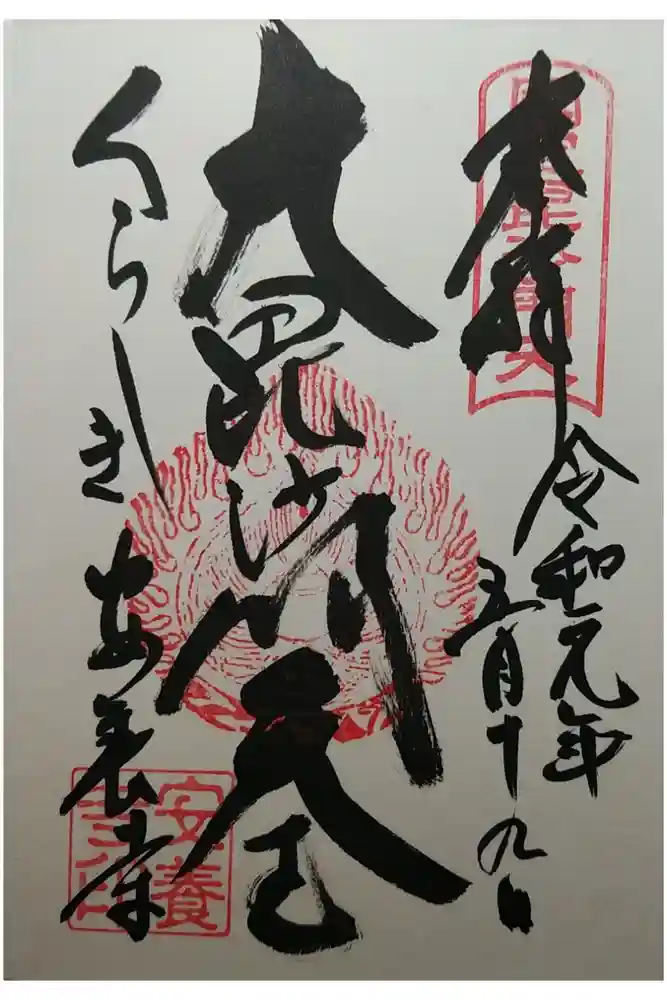 奉拝
令和元年
五月十九日
大毘沙門天
くらしき
安養寺
安養
寺印